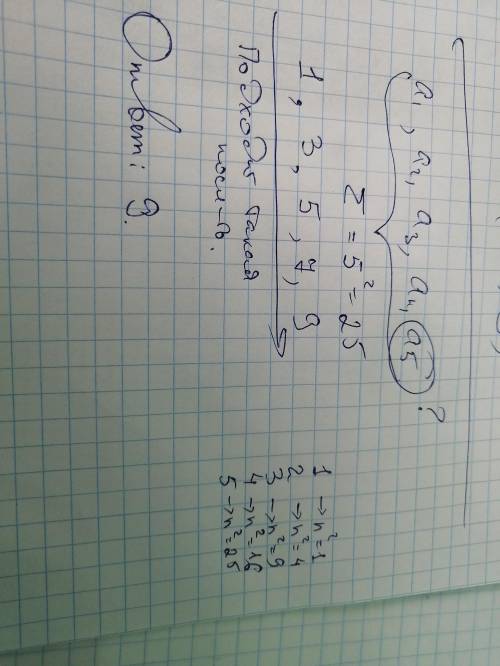 a₁, a₂, a₃, a₄, a₅ ?
Σ = 5² = 25
1, 3, 5, 7, 9
Подходит такая
посл-ть.
Ответ: 9.
1 → n² = 1
2 → n² = 4
3 → n² = 9
4 → n² = 16
5 → n² = 25